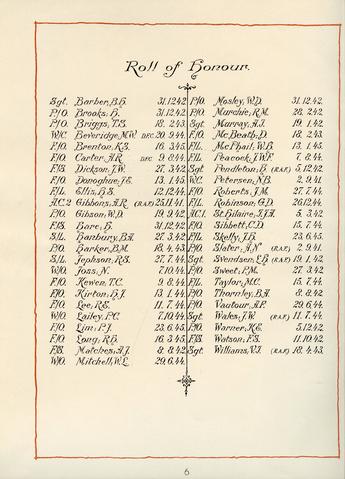 Roll of Honour.
Sgt. Barber, B.H. 31.12.42
P/O. Brooks, H. 31.12.42
P/O. Briggs, T.S. 18. 2.43
W/C. Beveridge, M.W. DEC. 20. 9.44.
F/O. Brenton, K.S. 16. 3.45.
F/O. Carter, A.R. DEC 9. 8.44.
F/S. Dickson, J.W. 27. 3.42
F/O. Donoghue, J.E. 13. 1.45
F/L. Ellis, B.S. 12.12.44.
A.C.2 Gibbons, A.R. (RAF) 25.11.41.
P/O. Gibson, W.D. 19. 9.42
F/S. Hore, H. 31.12.42
S/L. Hanbury, B.A. 27. 3.42
P/O. Harker, B.M. 18. 4.43.
S/L. Jephson, R.S. 27. 7.44.
W/O. Joss, N. 7.10.44.
F/O. Kewen, T.C. 9. 8.44
F/O. Kirton, H.J. 13. 1.44
F/O. Lee, R.E. 11. 7.44
W/O. Lailey, P.C. 7.10.44
F/O. Lim, P.J. 23. 6.45
F/O. Long, R.H. 16. 3.45
F/S. Matches, A.J. 8. 8.42
W/O. Mitchell, W.L. 29. 6.44.
P/O. Mosley, W.D. 31.12.42.
P/O. Murchie, R.M. 28. 2.42
Sgt. Murray, A.J. 19. 1.42
F/O. McBeath, D. 18. 2.43.
F/L. McPhail, W.B. 13. 1.45.
F/L. Peacock, J.W.F. 7. 8.44.
Sgt. Pendleton, H. (RAF) 5.12.42
W/C. Petersen, N.B. 2. 9.41.
F/O. Roberts, J.M. 27. 7.44.
F/L. Robinson, G.D. 26.12.44.
A.C.1. St. Hilaire, J.J.A. 5. 3.42
F/O. Sibbett, C.D. 15. 7.44.
F/L. Skelly, J.H. 23. 6.45.
P/O. Slater, A.N. (RAF) 2. 9.41.
Sgt. Svendsen, E.H. (RAF) 19. 1.42
P/O. Sweet, P.M. 27. 3.42
F/L. Taylor, M.C. 15. 7.44.
P/O. Thornley, B.A. 8. 8.42
F/O. Vautour, A.F. 29. 6.44.
Sgt. Wales, J.W. (RAF) 11. 7.44.
P/O. Warner, K.E. 5.12.42
F/S. Watson, F.S. 11.10.42
Sgt. Williams, V.I. (RAF) 18. 4.43.
6